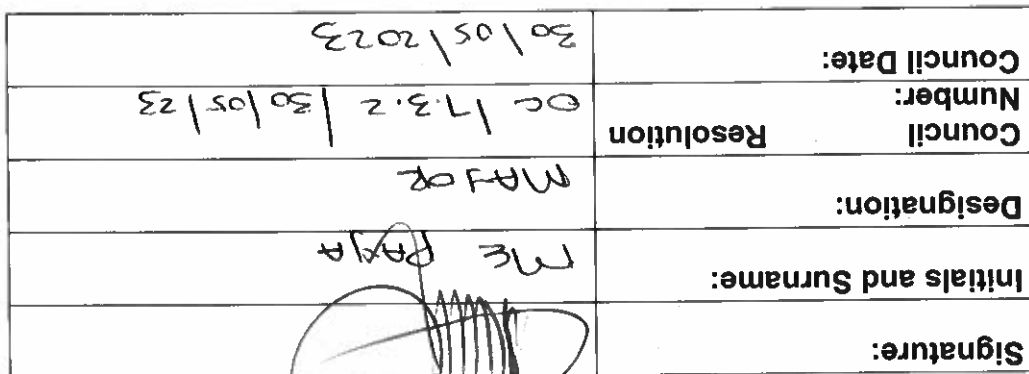 Signature:
Initials and Surname: ME
Designation: MAYOR
Council Resolution
Number: OC 17.3.2 / 30/05/23
Council Date: 30/05/2023